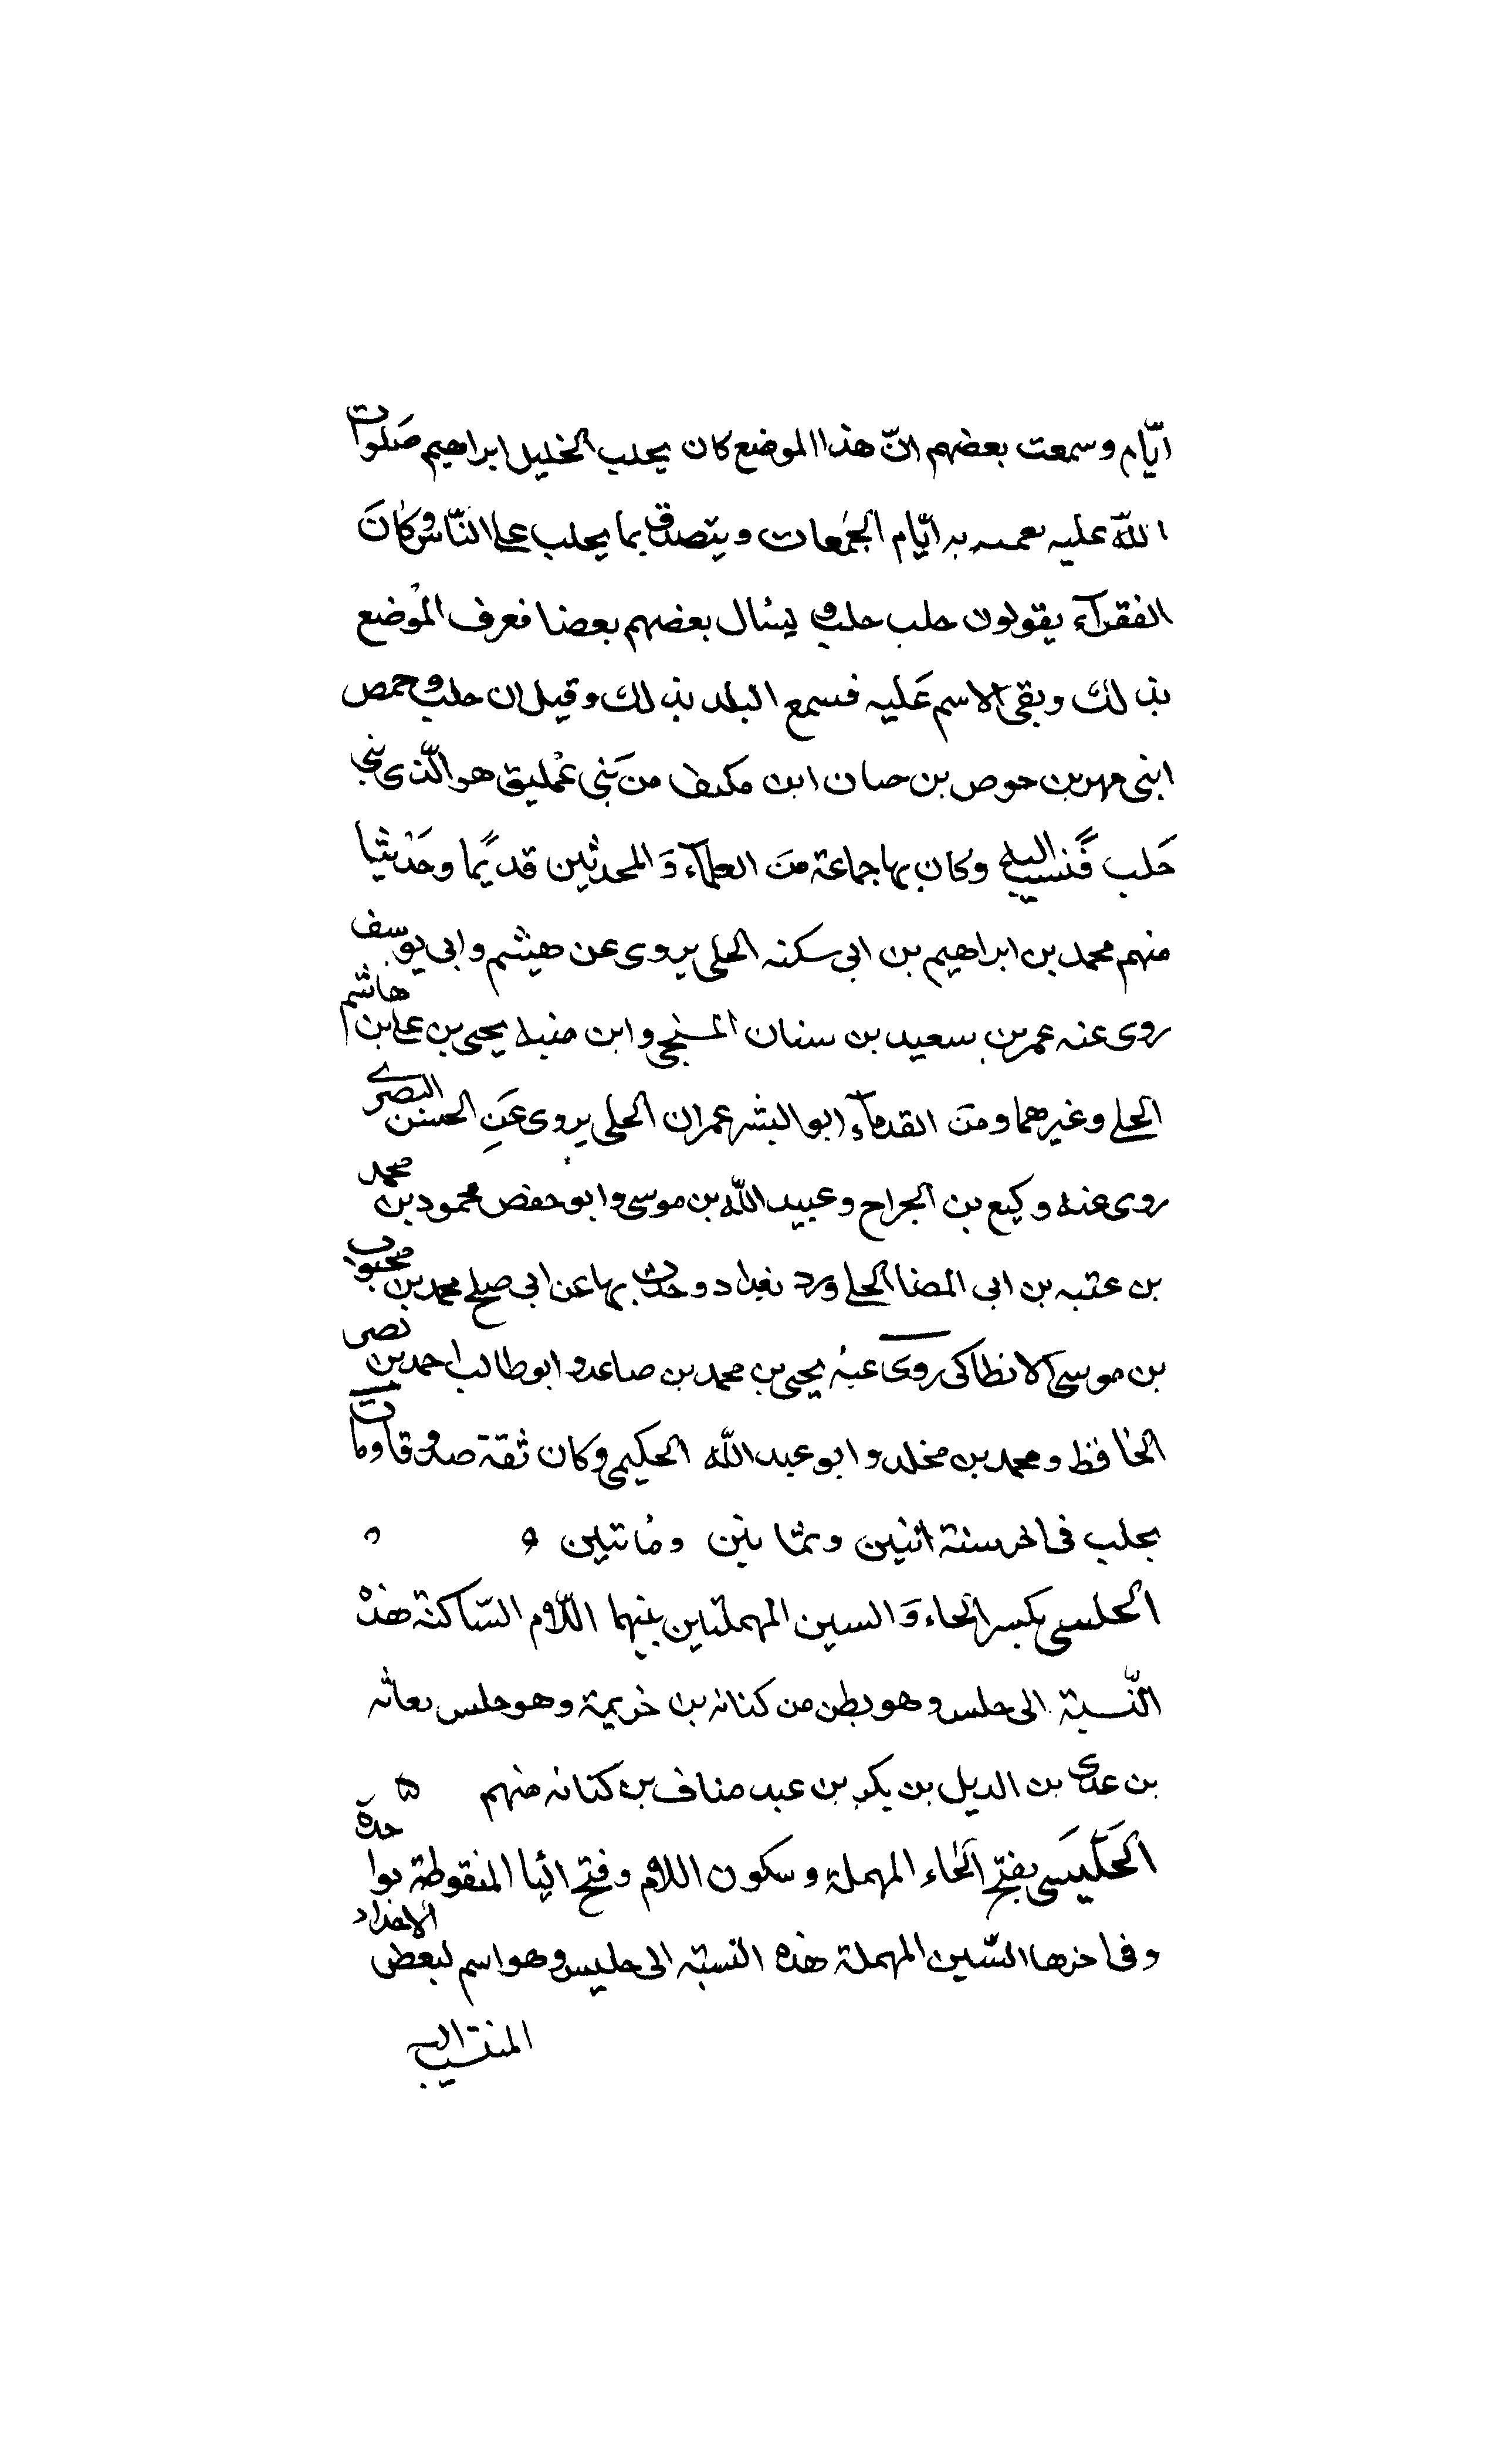 ايّام وسمعت بعضهم انّ هذا الموضع كان يحلب الخليل ابراهيم صَلوات
اللّه عليه به ايّام الجمُعات ويتصدق بما يحلب على النّاس وكانَ
الفقرآء يقولون حلب حلب و يسُال بعضهم بعضا فعرف الموْضع
بذلك وبقى الاسم عَليه فسمع البلد بذلك وقيل ان حلب وحمص
ابنى مهر بن حوص بن حسان ابن مكنف منَ بَنى عمْليق هو الّذى بنى
حَلب فَنسب اليه وكان بها جماعة منَ العلمآء وَ المحدثين قديمًا وحَديثيا
منهم محمد بن ابراهيم بن ابى سكنه الحلبى يروى عن هيشم وابى يوسف
روى عنه عمر بن سعيد بن سنان المنبجى وابن منبله يحيى بن على بن هاشم
الحلبى وغيرهما ومنَ القدمآء ابو البشر عمران الحلبى يروى عَنِ الحسن البصرى
روى عنه وكيع بن الجراح وعبيد اللّه بن موسى وابو حفص محمود بن محمد
بن عتبه بن ابى المضا الحلبى ورد بغداد وحدث بها عن ابى صلح محمد بن محبوب
بن موسى الانطاكى روى عنه يحيى بن محمد بن صاعد وابو طالب احمد بن نصر
الحافظ ومحمد بن مخلد وابو عبد اللّه الحكيمى وكان ثقة صدوقا ومات
بحلب فى اخر سنة اثنين وثمانين ومُاتين ه
الحلسى بكسر الحاء وَ السين المهملتين بينهما اللّام السّاكنة هذه
النّسبة الى حلس وهو بطن من كنانه بن خزيمة وهو حلس نفاثه
بن عدى بن الديل بن بكر بن عبد مناف بن كنانه منهم
الحَلْيَسى بفتح الحاء المهملة وسكون اللام وفتح اليا المنقوطة بواحدة
وفى اخرها السّين المهملة هذه النسبة الى حليس وهو اسم لبعض الاجداد
المنتسب اليه